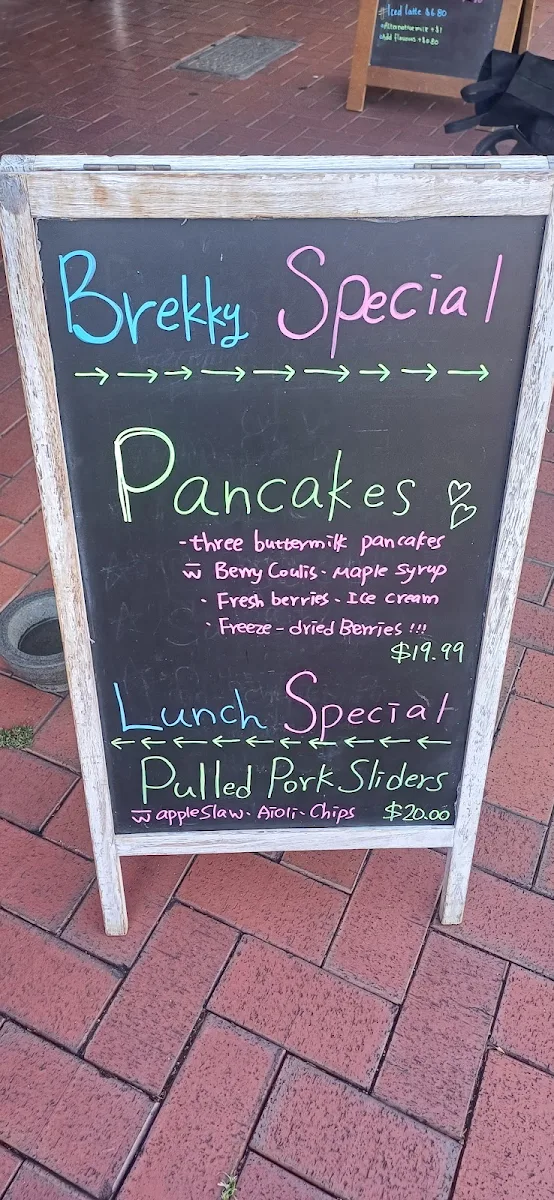 #Iced latte $6.80
Alternative milk +$1
Add flavours +$0.80
Brekky Special
→ → → → → → → → →
Pancakes ♡♡
-three buttermilk pancakes
w̅ Berry Coulis · Maple Syrup
· Fresh berries · Ice cream
· Freeze-dried Berries !!!
$19.99
Lunch Special
← ← ← ← ← ← ← ← ← ← ←
Pulled Pork Sliders
w̅ apple Slaw · Aioli · Chips $20.00